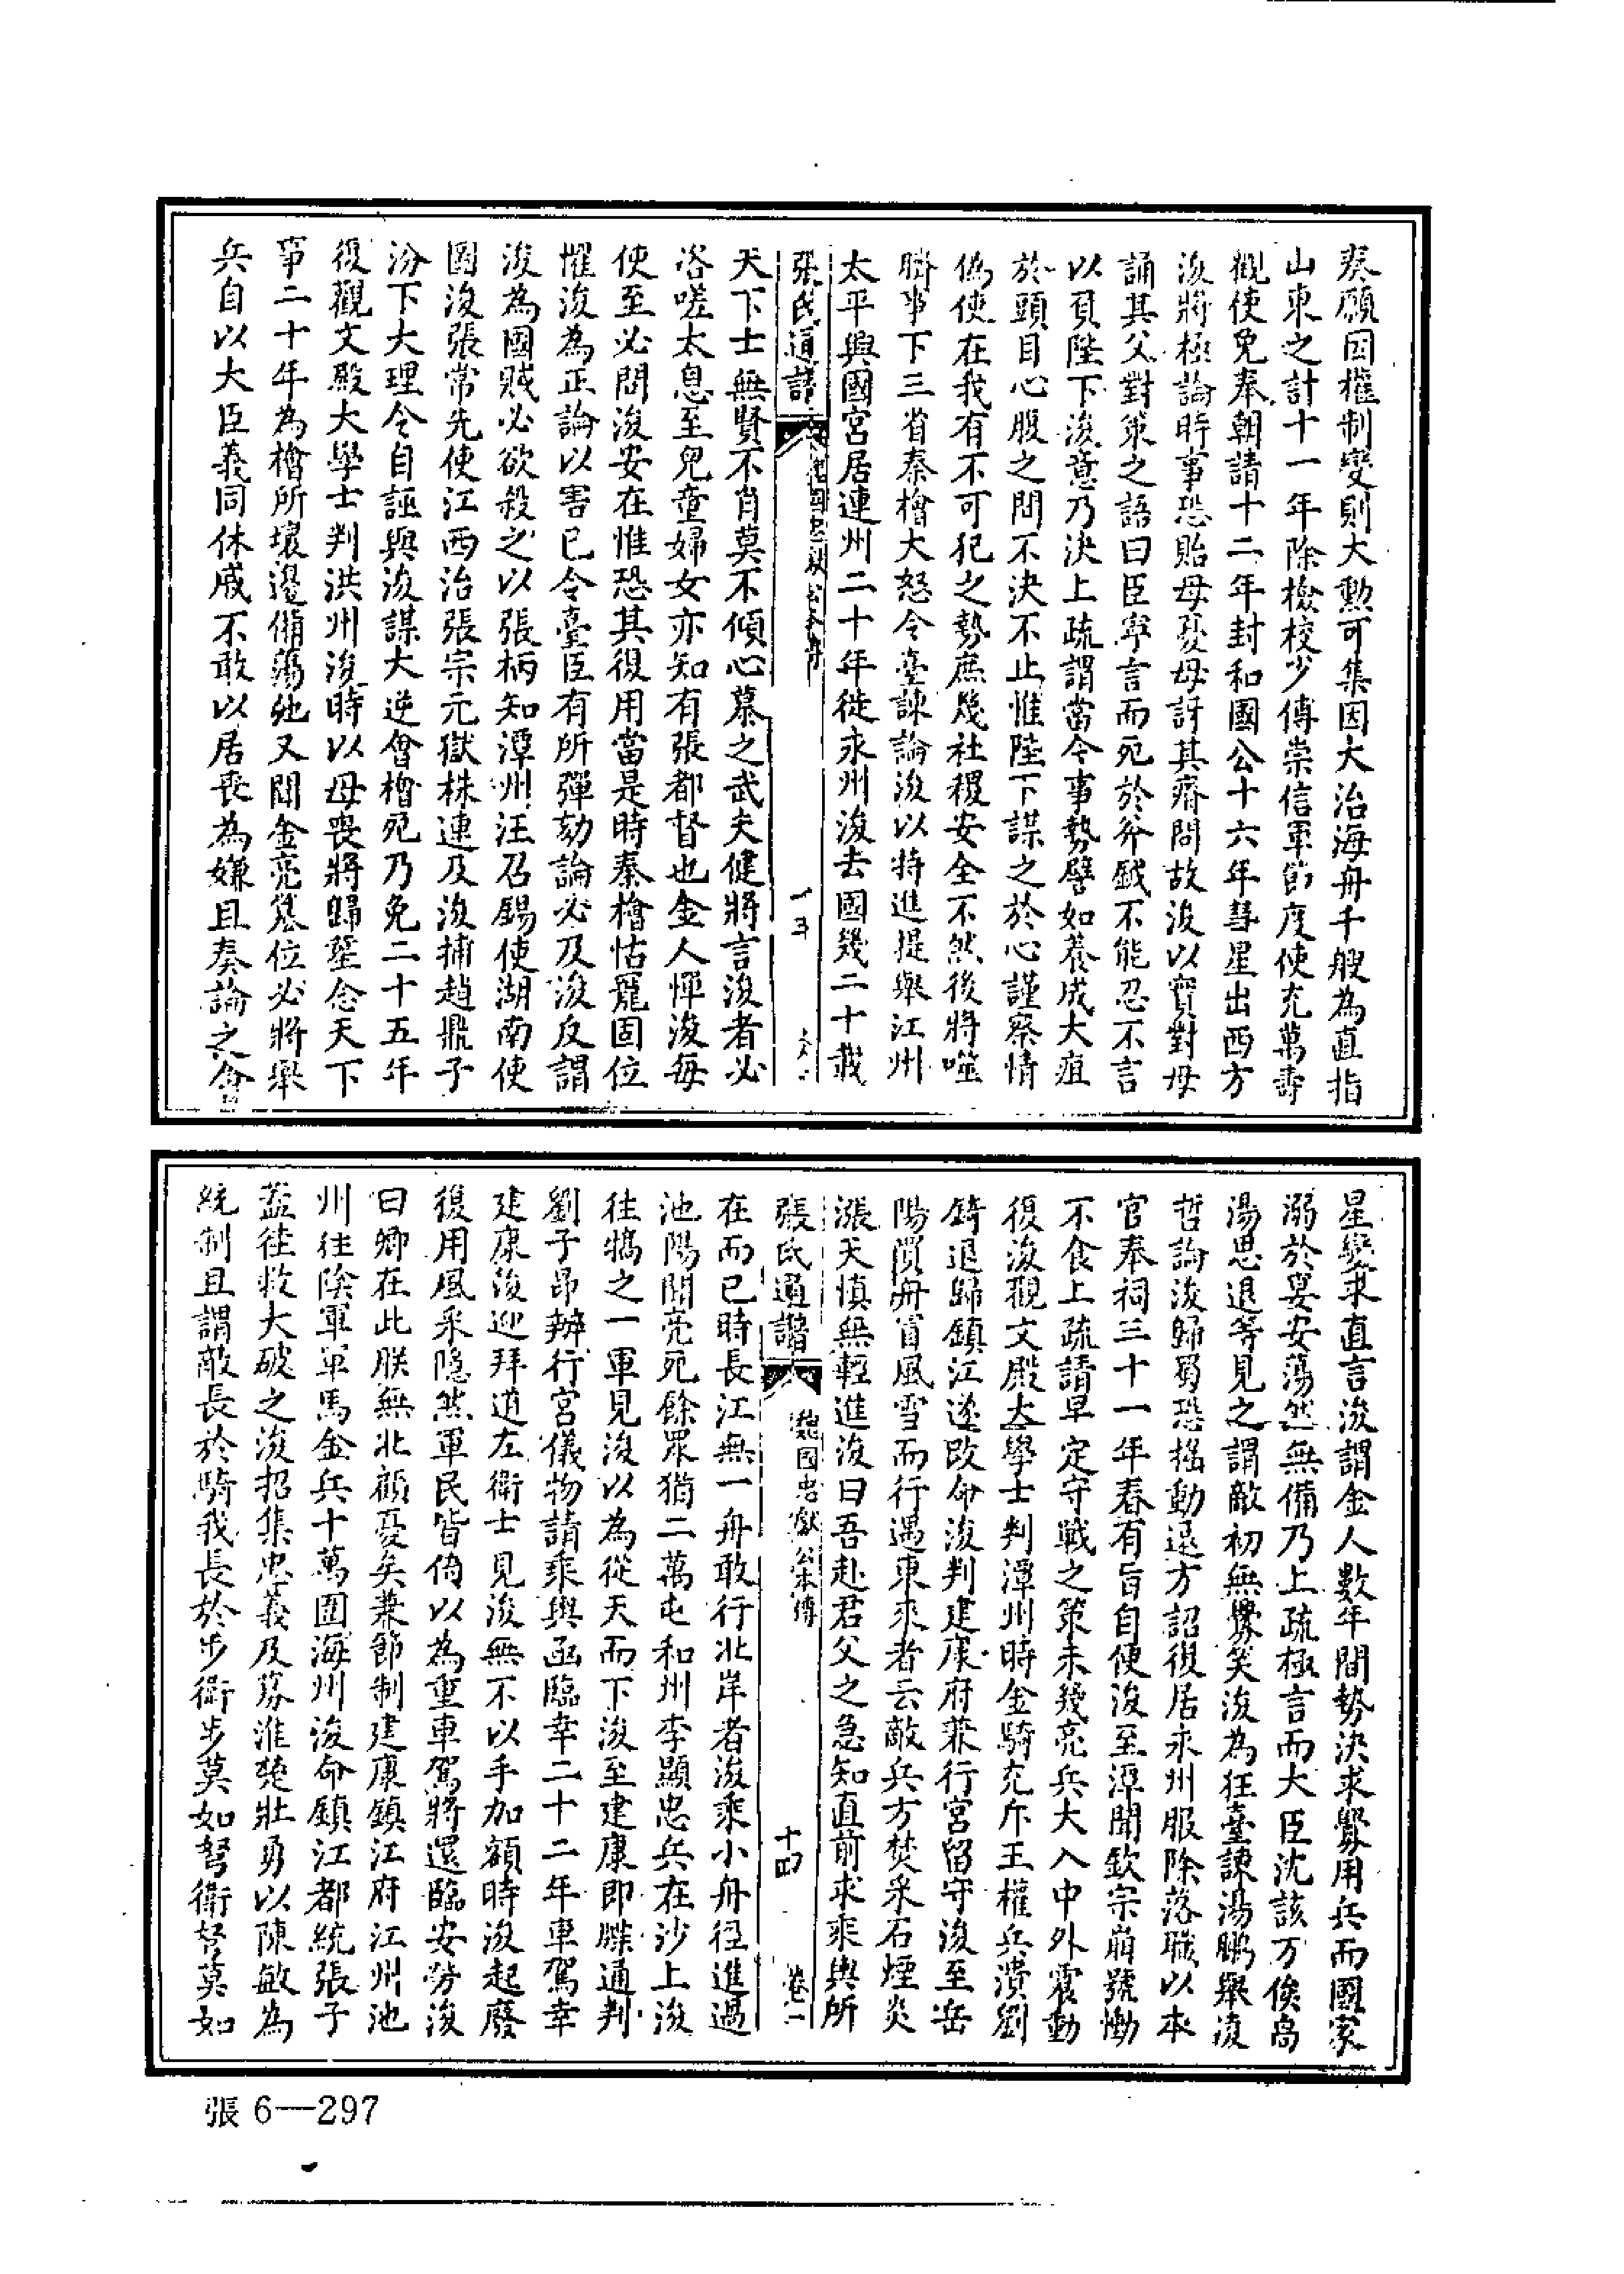 奏願因權制變則大勲可集因大治海舟千艘為直指
山東之計十一年除檢校少傅崇信軍節度使充萬壽
觀使免奉朝請十二年封和國公十六年彗星出西方
浚將極論時事恐貽母憂母訝其瘠問故浚以實對母
誦其父對策之語曰臣寧言而死於斧鉞不能忍不言
以負陛下浚意乃決上疏謂當今事勢譬如養成大疽
於頭目心腹之間不決不止惟陛下謀之於心謹察情
偽使在我有不可犯之勢庶幾社稷安全不然後將噬
臍事下三省秦檜大怒令臺諫論浚以特進提舉江州
太平興國宮居連州二十年徙永州浚去國幾二十載
張氏通譜
魏國忠獻公本傳
十三
天下士無賢不肖莫不傾心慕之武夫健將言浚者必
咨嗟太息至兒童婦女亦知有張都督也金人憚浚每
使至必問浚安在惟恐其復用當是時秦檜怙寵固位
懼浚為正論以害已令臺臣有所彈劾論必及浚反謂
浚為國賊必欲殺之以張柄知潭州汪召錫使湖南使
圖浚張常先使江西治張宗元獄株連及浚捕趙鼎子
汾下大理令自誣與浚謀大逆會檜死乃免二十五年
復觀文殿大學士判洪州浚時以母喪將歸塟念天下
事二十年為檜所壞邊備蕩弛又聞金亮簒位必將舉
兵自以大臣義同休戚不敢以居喪為嫌且奏論之會
星變求直言浚謂金人數年間勢決求釁用兵而國家
溺於宴安蕩然無備乃上疏極言而大臣沈該万俟卨
湯思退等見之謂敵初無釁笑浚為狂臺諫湯鵬舉凌
哲論浚歸蜀恐搖動遠方詔復居永州服除落職以本
官奉祠三十一年春有旨自便浚至潭聞欽宗崩號慟
不食上疏請早定守戰之策未幾亮兵大入中外震動
復浚觀文殿大學士判潭州時金騎充斥王權兵潰劉
錡退歸鎮江遂改命浚判建康府兼行宮留守浚至岳
陽買舟冒風雪而行遇東來者云敵兵方焚采石煙炎
漲天慎無輕進浚曰吾赴君父之急知直前求乘輿所
張氏通譜
魏國忠獻公本傳
十四
卷二
在而已時長江無一舟敢行北岸者浚乘小舟徑進過
池陽聞亮死餘眾猶二萬屯和州李顯忠兵在沙上浚
往犒之一軍見浚以為從天而下浚至建康即牒通判
劉子昂辦行宮儀物請乘輿亟臨幸二十二年車駕幸
建康浚迎拜道左衛士見浚無不以手加額時浚起廢
復用風采隱然軍民皆倚以為重車駕將還臨安勞浚
曰卿在此朕無北顧憂矣兼節制建康鎮江府江州池
州江陰軍軍馬金兵十萬圍海州浚命鎮江都統張子
蓋往救大破之浚招集忠義及募淮楚壯勇以陳敏為
統制且謂敵長於騎我長於步衛步莫如弩衛弩莫如
張6—297